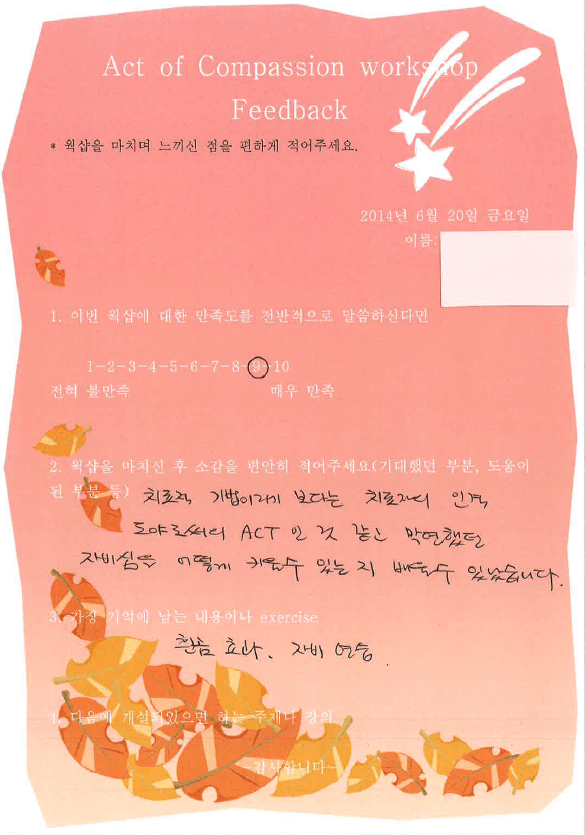 Act of Compassion workshop
Feedback
* 웍샵을 마치며 느끼신 점을 편하게 적어주세요.
2014년 6월 20일 금요일
이름:
1. 이번 웍샵에 대한 만족도를 전반적으로 말씀하신다면
1-2-3-4-5-6-7-8-9-10
전혀 불만족 매우 만족
2. 웍샵을 마치신 후 소감을 편안히 적어주세요(기대했던 부분, 도움이
된 부분 등)
치료적 기법이라기 보다는 치료자의 인격
도야로써의 ACT 인 것 같고 막연했던
자비심을 어떻게 키울수 있는지 배울수 있었습니다.
3. 가장 기억에 남는 내용이나 exercise
흰곰 효과. 자비 연습
4. 다음에 개설되었으면 하는 주제나 강의
-감사합니다-